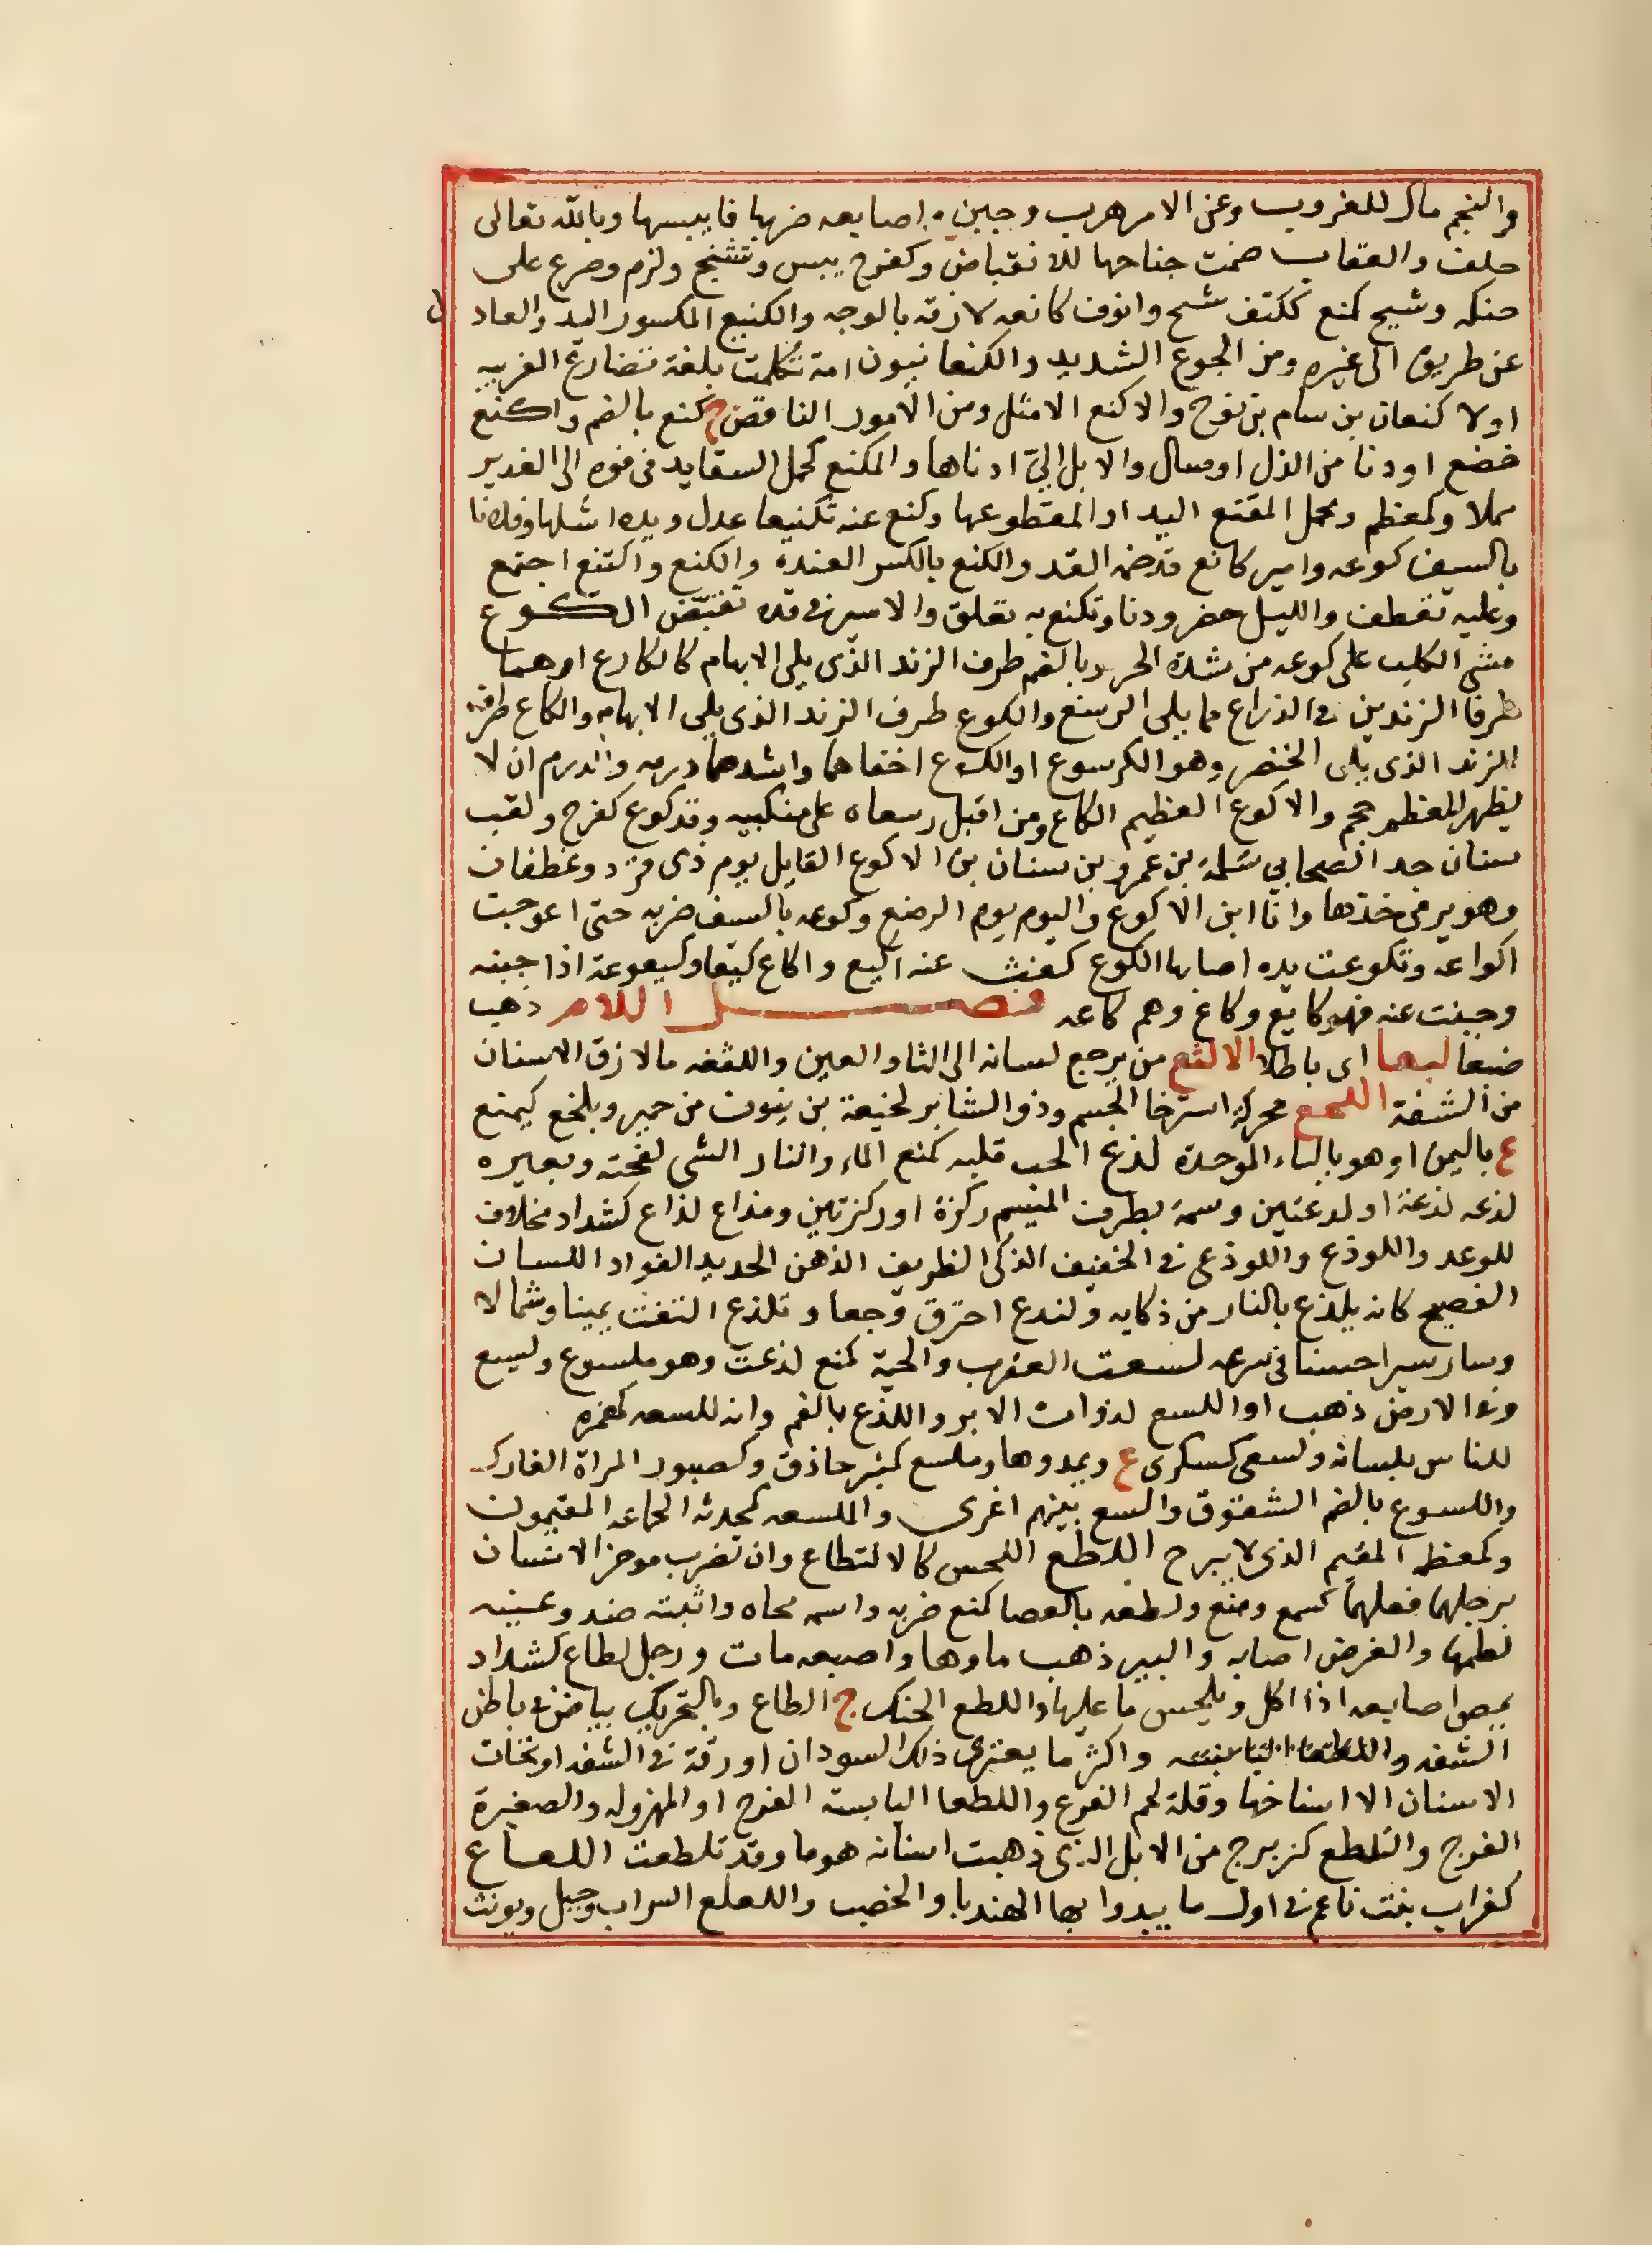 والنجم مال للغروب وعن الامر هرب وجبن و اصابعه ضربها فايبسها وبالله تعالى
حلف والعقاب ضمت جناحها للانقباض وكفرح يبس وتشنج ولزم وصرع على
حنكه وشيخ كنع ككتف شنج وانوف كانعه لازقه بالوجه والكنيع المكسور اليد والعاد ل
عن طريق الى غيره ومن الجوع الشديد والكنعانيون امة تكلمت بلغة تضارع العربيه
اولاد كنعان بن سام بن نوح والاكنع الاشل ومن الامور الناقص ج كنع بالضم واكنع
خضع او دنا من الذل او سال والابل الي ادناها والمكنع كمجمل السقا يدنى فوه الى الغدير
يملا وكمعظم ومجمل المقفع اليد او المقطوعها وكنع عنه تكنيعا عدل ويده اشلها وفلانا
بالسيف كوعه واسير كانع قد ضمه القد والكنع بالكسر العنده والكنع واكتنع اجتمع
وعليه تعطف والليل حضر ودنا وتكنع به تعلق والاسير فى قده تقبض الكوع
مشى الكلب على كوعه من شدة الحر وبالضم طرف الزند الذى يلى الابهام كالكاع او هما
طرفا الزندين فى الذراع مما يلى الرسغ والكوع طرف الزند الذى يلى الابهام والكاع طرف
الزند الذى يلى الخنصر وهو الكرسوع او الكوع اخفاهما واشدهما درمه والدرم ان لا
يظهر للعظم حجم والاكوع العظيم الكاع ومن اقبل رسغاه على منكبيه وقد كوع كفرح ولقب
سنان جد الصحابي سلمة بن عمرو بن سنان بن الاكوع القايل يوم ذى قرد وغطفان
وهو يرمى خذها وانا ابن الاكوع واليوم يوم الرضع وكوعه بالسيف ضربه حتى اعوجت
اكواعه وتكوعت يده اصابها الكوع كعت عنه اكيع واكاع كيعا وكيعوعة اذا جبته
وجبنت عنه فهو كايع وكاع وهم كاعه فصل اللام ذهب
ضبعا لبعا اى باطلا الالثغ من يرجع لسانه الى الثا والعين واللثغه ما لازق الاسنان
من الشفة اللخع محركة استرخا الجسم وذو الشناتر لخيعة بن ينوت من حمير ويلخع كيمنع
ع باليمن او هو بالباء الموحدة لذع الحب قلبه كمنع الماء والنار الشى لفحته وبعيره
لذعه لذعة او لذعتين وسمه بطرف الميسم ركزة او ركزتين ومذاع لذاع كشداد مخلاف
للوعد واللوذع واللوذعى فى الخفيف الذكى الظريف الذهن الحديد الفواد اللسان
الفصيح كانه يلذع بالنار من ذكايه ولنذع احترق وجعا وتلذع التفت يمينا وشمالا
وسار سيرا حسنا فى سرعه لسعت العقرب والحية كمنع لدغت وهو ملسوع ولسيع
وفى الارض ذهب او اللسع لذوات الابر واللدغ بالفم وانه للسعه كهمزه
للناس بلسانه ولسعى كسكرى ع ويمد وهاد ملسع كمنبر حاذق وكصبور المراة الفارك
واللسوع بالضم الشقوق والسع بينهم اغرى والملسعه كمحدثه الجماعه المقيمون
وكمعظمه المقيم الذى لا يبرح اللطع اللحس كالالتطاع وان تضرب موخر الانسان
برجلها فعلهما كسمع ومنع ولطعه بالعصا كمنع ضربه واسمه محاه واثبته ضد وعينه
لطمها والغرض اصابه والبير ذهب ماوها واصبعه مات ورجل لطاع كشداد
يمص اصابعه اذا اكل ويلحس ما عليها واللطع الحنك ج الطاع وبالتحريك بياض فى باطن
الشفه واكثر ما يعترى ذلك السودان او رقة فى الشفه او تحات
الاسنان الا اسناخها وقلة لحم الفرج واللطعا اليابسة الفرج او المهزوله والصغيرة
الفرج والتلطع كزبرج من الابل الذى ذهبت اسنانه هرما وقد تلطعت اللعاع
كغراب نبت ناعم فى اول ما يبدوا بها الهندبا والخصب واللعلع السراب وجبل ويونث